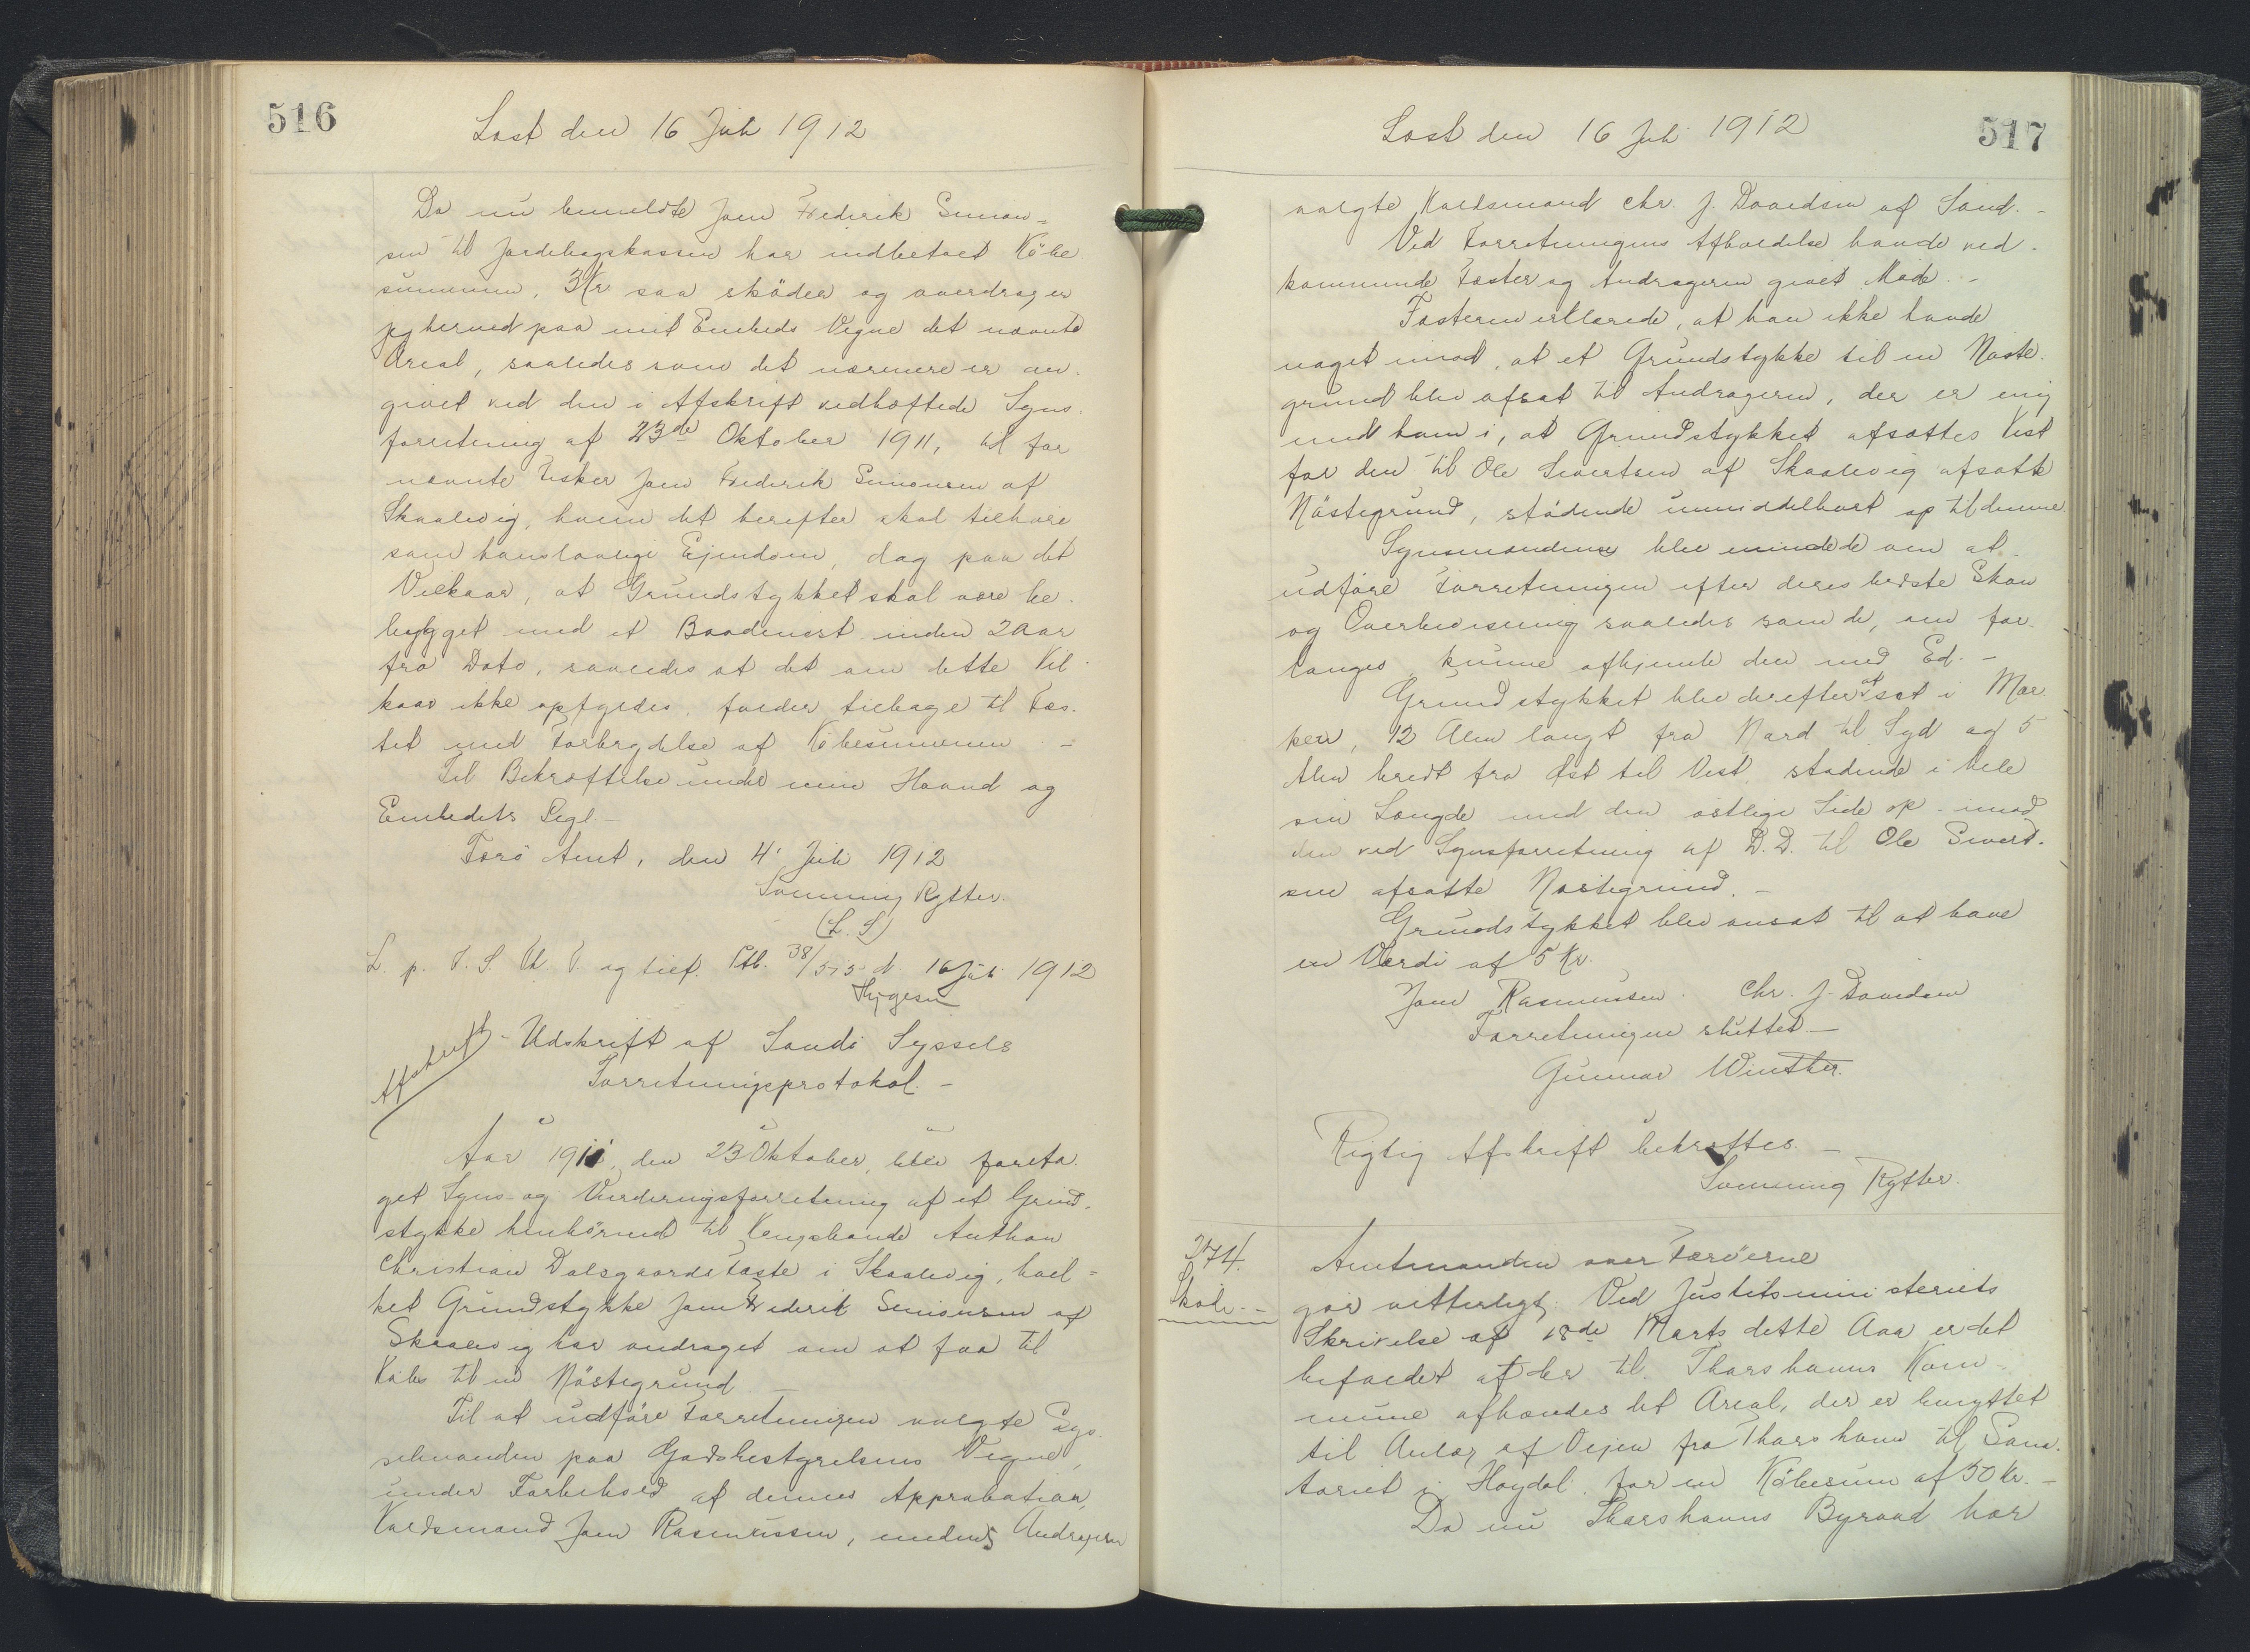 516
Læst den 16 Juli 1912
Da nu bemeldte Joen Frederik Simon=
sen til Jordebogskassen har indbetalt Köbe
summen, 3 Kr saa sköder og overdrager
jeg herved paa mit Embeds Vegne det nævnte
Areal, saaledes som det nærmere er an-
givet ved den i Afskrift vedhæftede Syns-
forretning af 23de Oktober 1911, til for
nævnte Fisker Joen Frederik Simonsen af
Skaalevig, hvem det herefter skal tilhøre
som hans lovlige Ejendom, dog paa det
Vilkaar, at Grundstykket skal være be-
bygget med et Baadenøst inden 2 Aar
fra Dato, saaledes at det om dette Vil-
kaar ikke opfyldes, falder tilbage til Fæs-
tet med Forbrydelse af Köbesummen -
Til Bekræftelse under min Haand og
Embedets Segl -
Færö Amt, den 4' Juli 1912
Svenning Rytter.
(L. S)
L. p. F. S. Ex. R. og tilf. Ptb. 38/515 d. 16 Juli 1912
Thygesen
Afskrift
- Udskrift af Sandö Syssels
Forretningsprotokol. -
Aar 1911, den 23 Oktober, blev foreta-
get Syns- og Vurderingsforretning af et Grund-
stykke henhörende til Kongsbonde Anthon
Christian Dalsgaards Fæste i Skaalevig, hvil=
ket Grundstykke Joen Frederik Simonsen af
Skaalevig har andraget om at faa til
Købs til en Nöstegrund -
Til at udföre Forretningen valgte Sys-
selmanden paa Godsbestyrelsens Vegne,
under Forbehold af dennes Approbation,
Vardsmand Joen Rasmussen, medens Andrageren
517
Læst den 16 Juli 1912
valgte Varðsmand Chr. J. Davidsen af Sand. -
Ved Forretningens Afholdelse havde ved-
kommende Fæster og Andrageren givet Møde. -
Fæsteren erklærede, at han ikke havde
noget imod, at et Grundstykke til en Nøste-
grund blev afsat til Andrageren, der er enig
med ham i, at Grundstykket afsættes Vest
for den til Ole Sivertsen af Skaalevig afsatte
Nöstegrund, stødende umiddelbart op til denne.
Synsmændene blev mindede om at
udføre Forretningen efter deres bedste Skøn
og Overbevisning saaledes som de, om for-
langes, kunne afhjemle den med Ed. -
Grundstykket blev derefter afsat i Mar-
ken, 12 Alen langt fra Nord til Syd og 5
Alen bredt fra Øst til Vest, stødende i hele
sin Længde med den østlige Side op imod
den ved Synsforretning af D.D. til Ole Sivert-
sen afsatte Nøstegrund. -
Grundstykket blev ansat til at have
en Værdi af 5 Kr.
Joen Rasmussen. Chr. J. Davidsen
Forretningen sluttet -
Gunnar Winther.
Rigtig Afskrift bekræftes. -
Svenning Rytter.
274.
Sköde. -
Amtmanden over Færöerne
gör vitterligt: Ved Justitsministeriets
Skrivelse af 18de Marts dette Aar er det
bifaldet at der til Thorshavns Kom-
mune afhændes det Areal, der er benyttet
til Anlæg af Vejen fra Thorshavn til Sana-
toriet i Hoydal for en Köbesum af 50 Kr. -
Da nu Thorshavns Byraad har